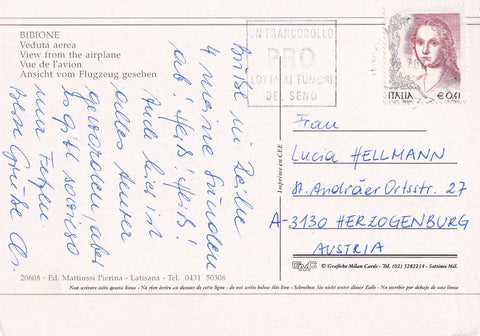 BIBIONE
Veduta aerea
View from the airplane
Vue de l'avion
Ansicht vom Flugzeug gesehen
UN FRANCOBOLLO
PRO
LOTTA AI TUMORI
DEL SENO
ITALIA € 0,41
Brüte in Reihe
4 meine Sünden
ab! Heiß! Heiß!
Auch hier ist
alles teurer
geworden, aber
es gibt sowieso
nur Fetzen.
Liebe Grüße
Imprimé en CEE
Frau
Lucia HELLMANN
St. Andräer Ortsstr. 27
A-3130 HERZOGENBURG
AUSTRIA
GMC © Grafiche Milan Cards - Tel. (02) 3282214 - Settimo Mil.
20608 - Ed. Mattiussi Pierina - Latisana - Tel. 0431 50308
Non scrivere sotto questa linea - Ne rien écrire au dessous de cette ligne - do not write below this line - Schreiben Sie nicht unter dieser Zeile - No escribir por debajo de esta linea